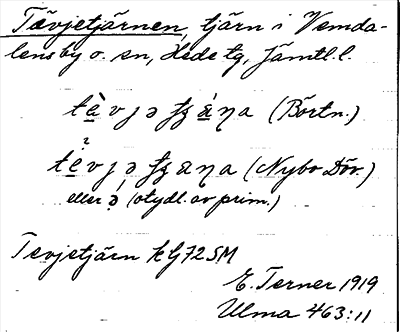 Tävjetjärnen, tjärn i Vemda-
lens by o. sn, Hede tg, Jämtl. l.
(Börtn.)
(Nybo Döv.)
eller ə̣ (otydl. av prim.)
Tevjetjärn k G72SM
E. Terner 1919
Ulma 463:11